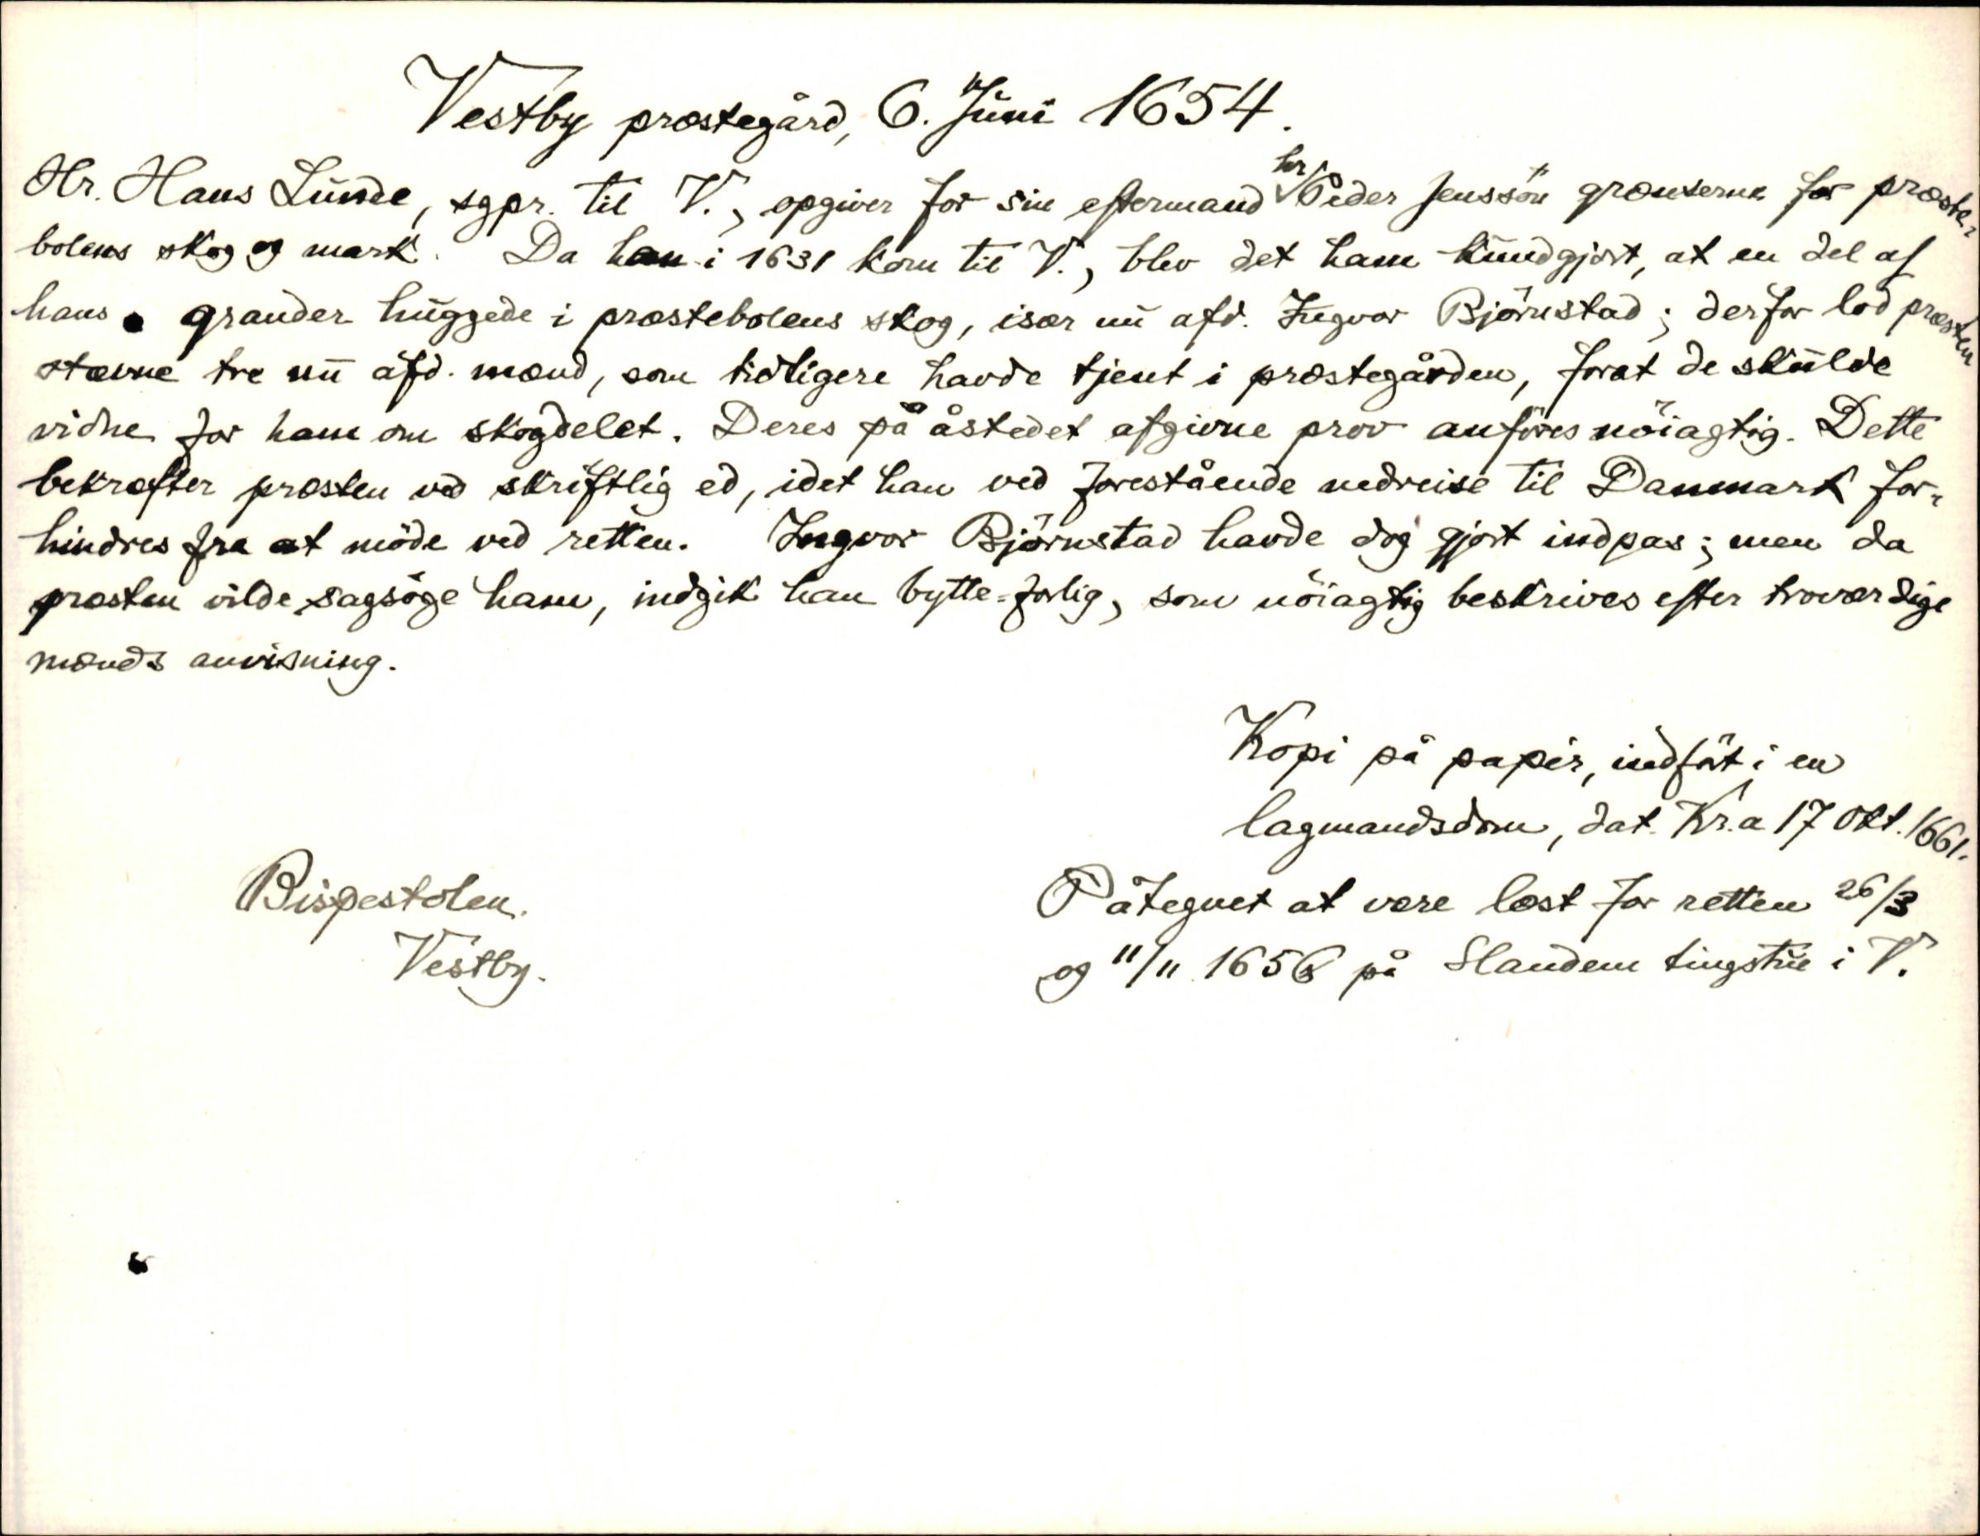 Vestby præstegård, 6. Juni 1654.
Hr. Hans Lunde, sgpr. til V., opgiver for sin eftermand hr Peder Jenssön grænserne for præste-
bolens skog og mark. Da han i 1631 kom til V., blev det ham kundgjort, at en del af
hans grander huggede i præstebolens skog, især nu afd. Ingvor Björnstad; derfor lod præsten
stævne tre nu afd. mænd, som tidligere havde tjent i præstegården, forat de skulde
vidne for ham om skogdelet. Deres på åstedet afgivne prov anföres nöiagtig. Dette
bekræfter præsten ved skriftlig ed, idet han ved forestående nedreise til Danmark for-
hindres fra at möde ved retten. Ingvor Björnstad havde dog gjort indpas; men da
præsten vilde sagsöge ham, indgik han bytte-forlig, som nöiagtig beskrives efter troværdige
mænds anvisning.
Kopi på papir, indfört i en
lagmandsdom, dat. Kr.a 17 Okt. 1661.
Påtegnet at være læst for retten 26/3
og 11/11 1656 på Slandem tingstue i V.
Bispestolen.
Vestby.